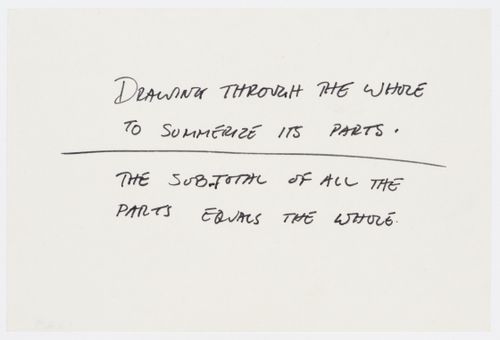 DRAWING THROUGH THE WHOLE
TO SUMMERIZE ITS PARTS.
THE SUB.TOTAL OF ALL THE
PARTS EQUALS THE WHOLE.